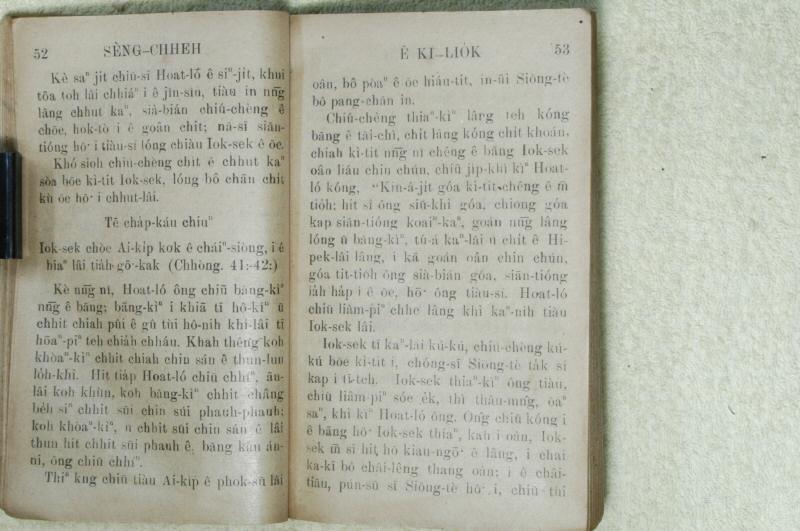 52 SÈNG-CHHEH
Kè saⁿ ji̍t chiū-sī Hoat-ló ê siⁿ-ji̍t, khui
tōa toh lâi chhiáⁿ i ê jîn-sîn, tiàu in nn̄g
lâng chhut kaⁿ, sià-bián chiú-chèng ê
chōe, ho̍k-tò i ê goân chit; nā-sī siān-
tióng hō͘ i tiàu-sí lóng chiàu Iok-sek ê ōe.
Khó-sioh chiú-chèng chit ê chhut kaⁿ
sòa bōe kì-tit Iok-sek, lóng bô chān chi̍t
kù ōe hō͘ i chhut-lâi.
Tē cha̍p-káu chiuⁿ
Iok-sek chòe Ai-ki̍p kok ê cháiⁿ-siòng, i ê
hiaⁿ lâi tia̍h gō͘-kak (Chhòng. 41:-42:)
Kè nn̄g nî, Hoat-ló ông chiū bāng-kìⁿ
nn̄g ê bāng; bāng-kìⁿ i khiā tī hô-kîⁿ ū
chhit chiah pûi ê gû tùi hô-nih khí-lâi tī
hōaⁿ-piⁿ teh chia̍h chháu. Khah thêng koh
khòaⁿ-kìⁿ chhit chiah chin sán ê thun-lun
lo̍h-khì. Hit tia̍p Hoat-ló chiū chhíⁿ, āu-
lâi koh khùn, koh bāng-kìⁿ chhit châng
be̍h siⁿ chhit sūi chin súi phauh-phauh;
koh khòaⁿ-kìⁿ, ū chhit sūi chin sán ê lâi
thun hit chhit sūi phauh ê, bāng kàu án-
ni, ông chiū chhíⁿ.
Thiⁿ kng chiū tiàu Ai-ki̍p ê phok-sū lâi
Ê KÌ-LIO̍K 53
oân, bô pòaⁿ ê ōe hiáu-tit, in-ūi Siōng-tè
bô pang-chān in.
Chiú-chèng thiaⁿ-kìⁿ lâng teh kóng
bāng ê tāi-chì, chi̍t lâng kóng chi̍t khoán,
chiah kì-tit nn̄g nî chêng ê bāng Iok-sek
oân liáu chin chún, chiū ji̍p-khì kìⁿ Hoat-
ló kóng, "Kin-á-ji̍t góa kì-tit chêng ê m̄
tio̍h; hit sî ông siū-khì góa, chiong góa
kap siān-tióng koaiⁿ-kaⁿ, goán nn̄g lâng
lóng ū bāng-kìⁿ, tú-á kaⁿ-lāi ū chi̍t ê Hi-
pek-lâi lâng, i kā goán oân chin chún,
góa tit-tio̍h ông sià-bián góa, siān-tióng
ia̍h ha̍p i ê ōe, hō͘ ông tiàu-sí. Hoat-ló
chiū liâm-piⁿ chhe lâng khì kaⁿ-nih tiàu
Iok-sek lâi.
Iok-sek tī kaⁿ-lāi kú-kú, chiú-chèng kú-
kú bōe kì-tit i, chóng-sī Siōng-tè ta̍k sî
kap i tī-teh. Iok-sek thiaⁿ-kìⁿ ông tiàu,
chiū liâm-piⁿ sóe e̍k, thì thâu-mn̂g, ōaⁿ
saⁿ, khì kìⁿ Hoat-ló ông. Ông chiū kóng i
ê bāng hō͘ Iok-sek thiaⁿ, kah i oân, Iok-
sek m̄ sī hit hō kiau-ngō͘ ê lâng, i chai
ka-kī bô châi-lêng thang oân; i ê châi-
tiāu, pún-sū sī Siōng-tè hō͘ i, chiū tùi